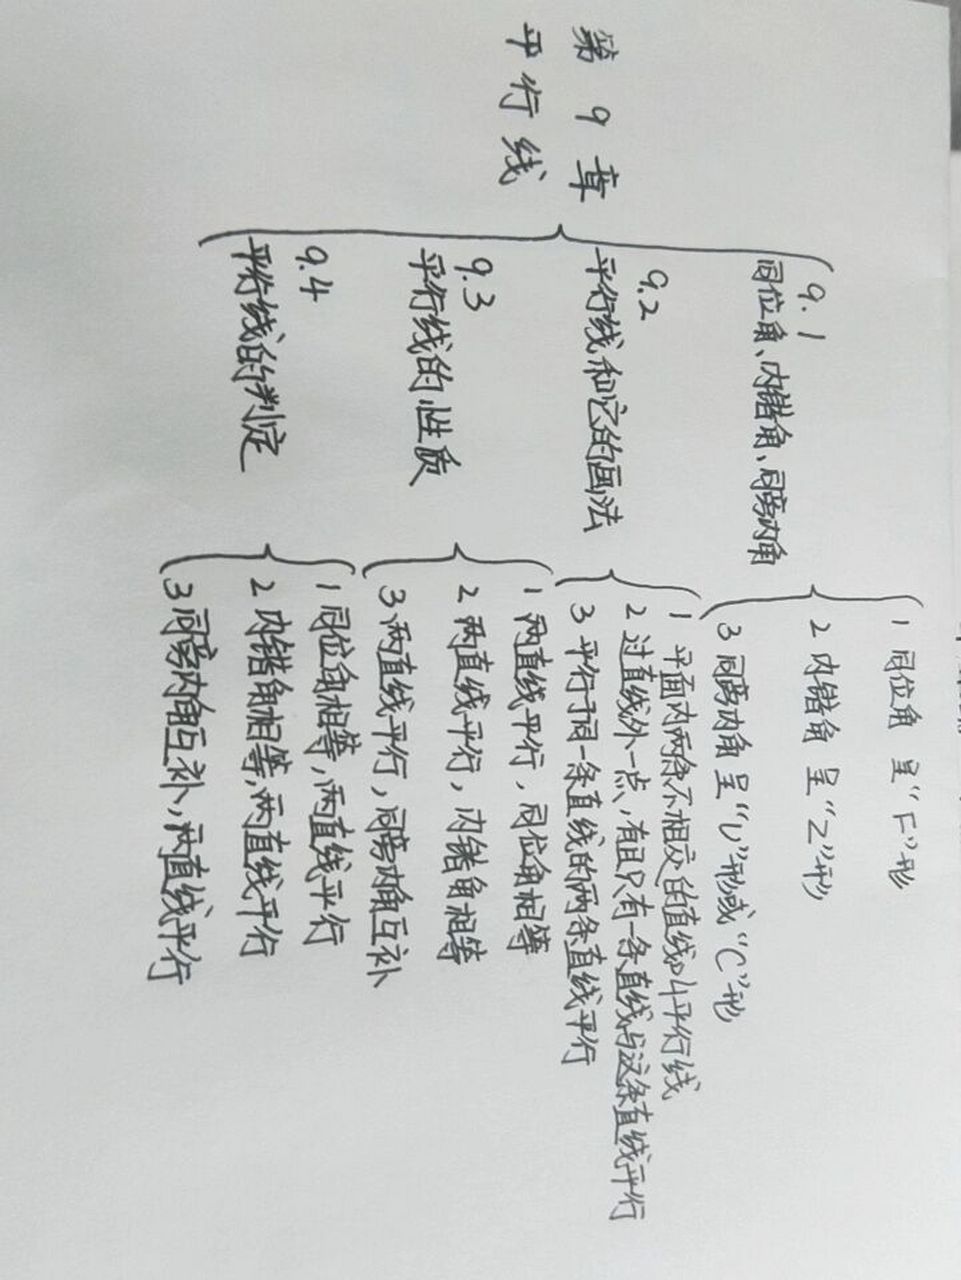 第9章
平行线
9.1
同位角、内错角、同旁内角
1 同位角 呈“F”形
2 内错角 呈“Z”形
3 同旁内角 呈“U”形或“C”形
9.2
平行线和它的画法
1 平面内两条不相交的直线叫平行线
2 过直线外一点,有且只有一条直线与这条直线平行
3 平行于同一条直线的两条直线平行
9.3
平行线的性质
1 两直线平行,同位角相等
2 两直线平行,内错角相等
3 两直线平行,同旁内角互补
9.4
平行线的判定
1 同位角相等,两直线平行
2 内错角相等,两直线平行
3 同旁内角互补,两直线平行